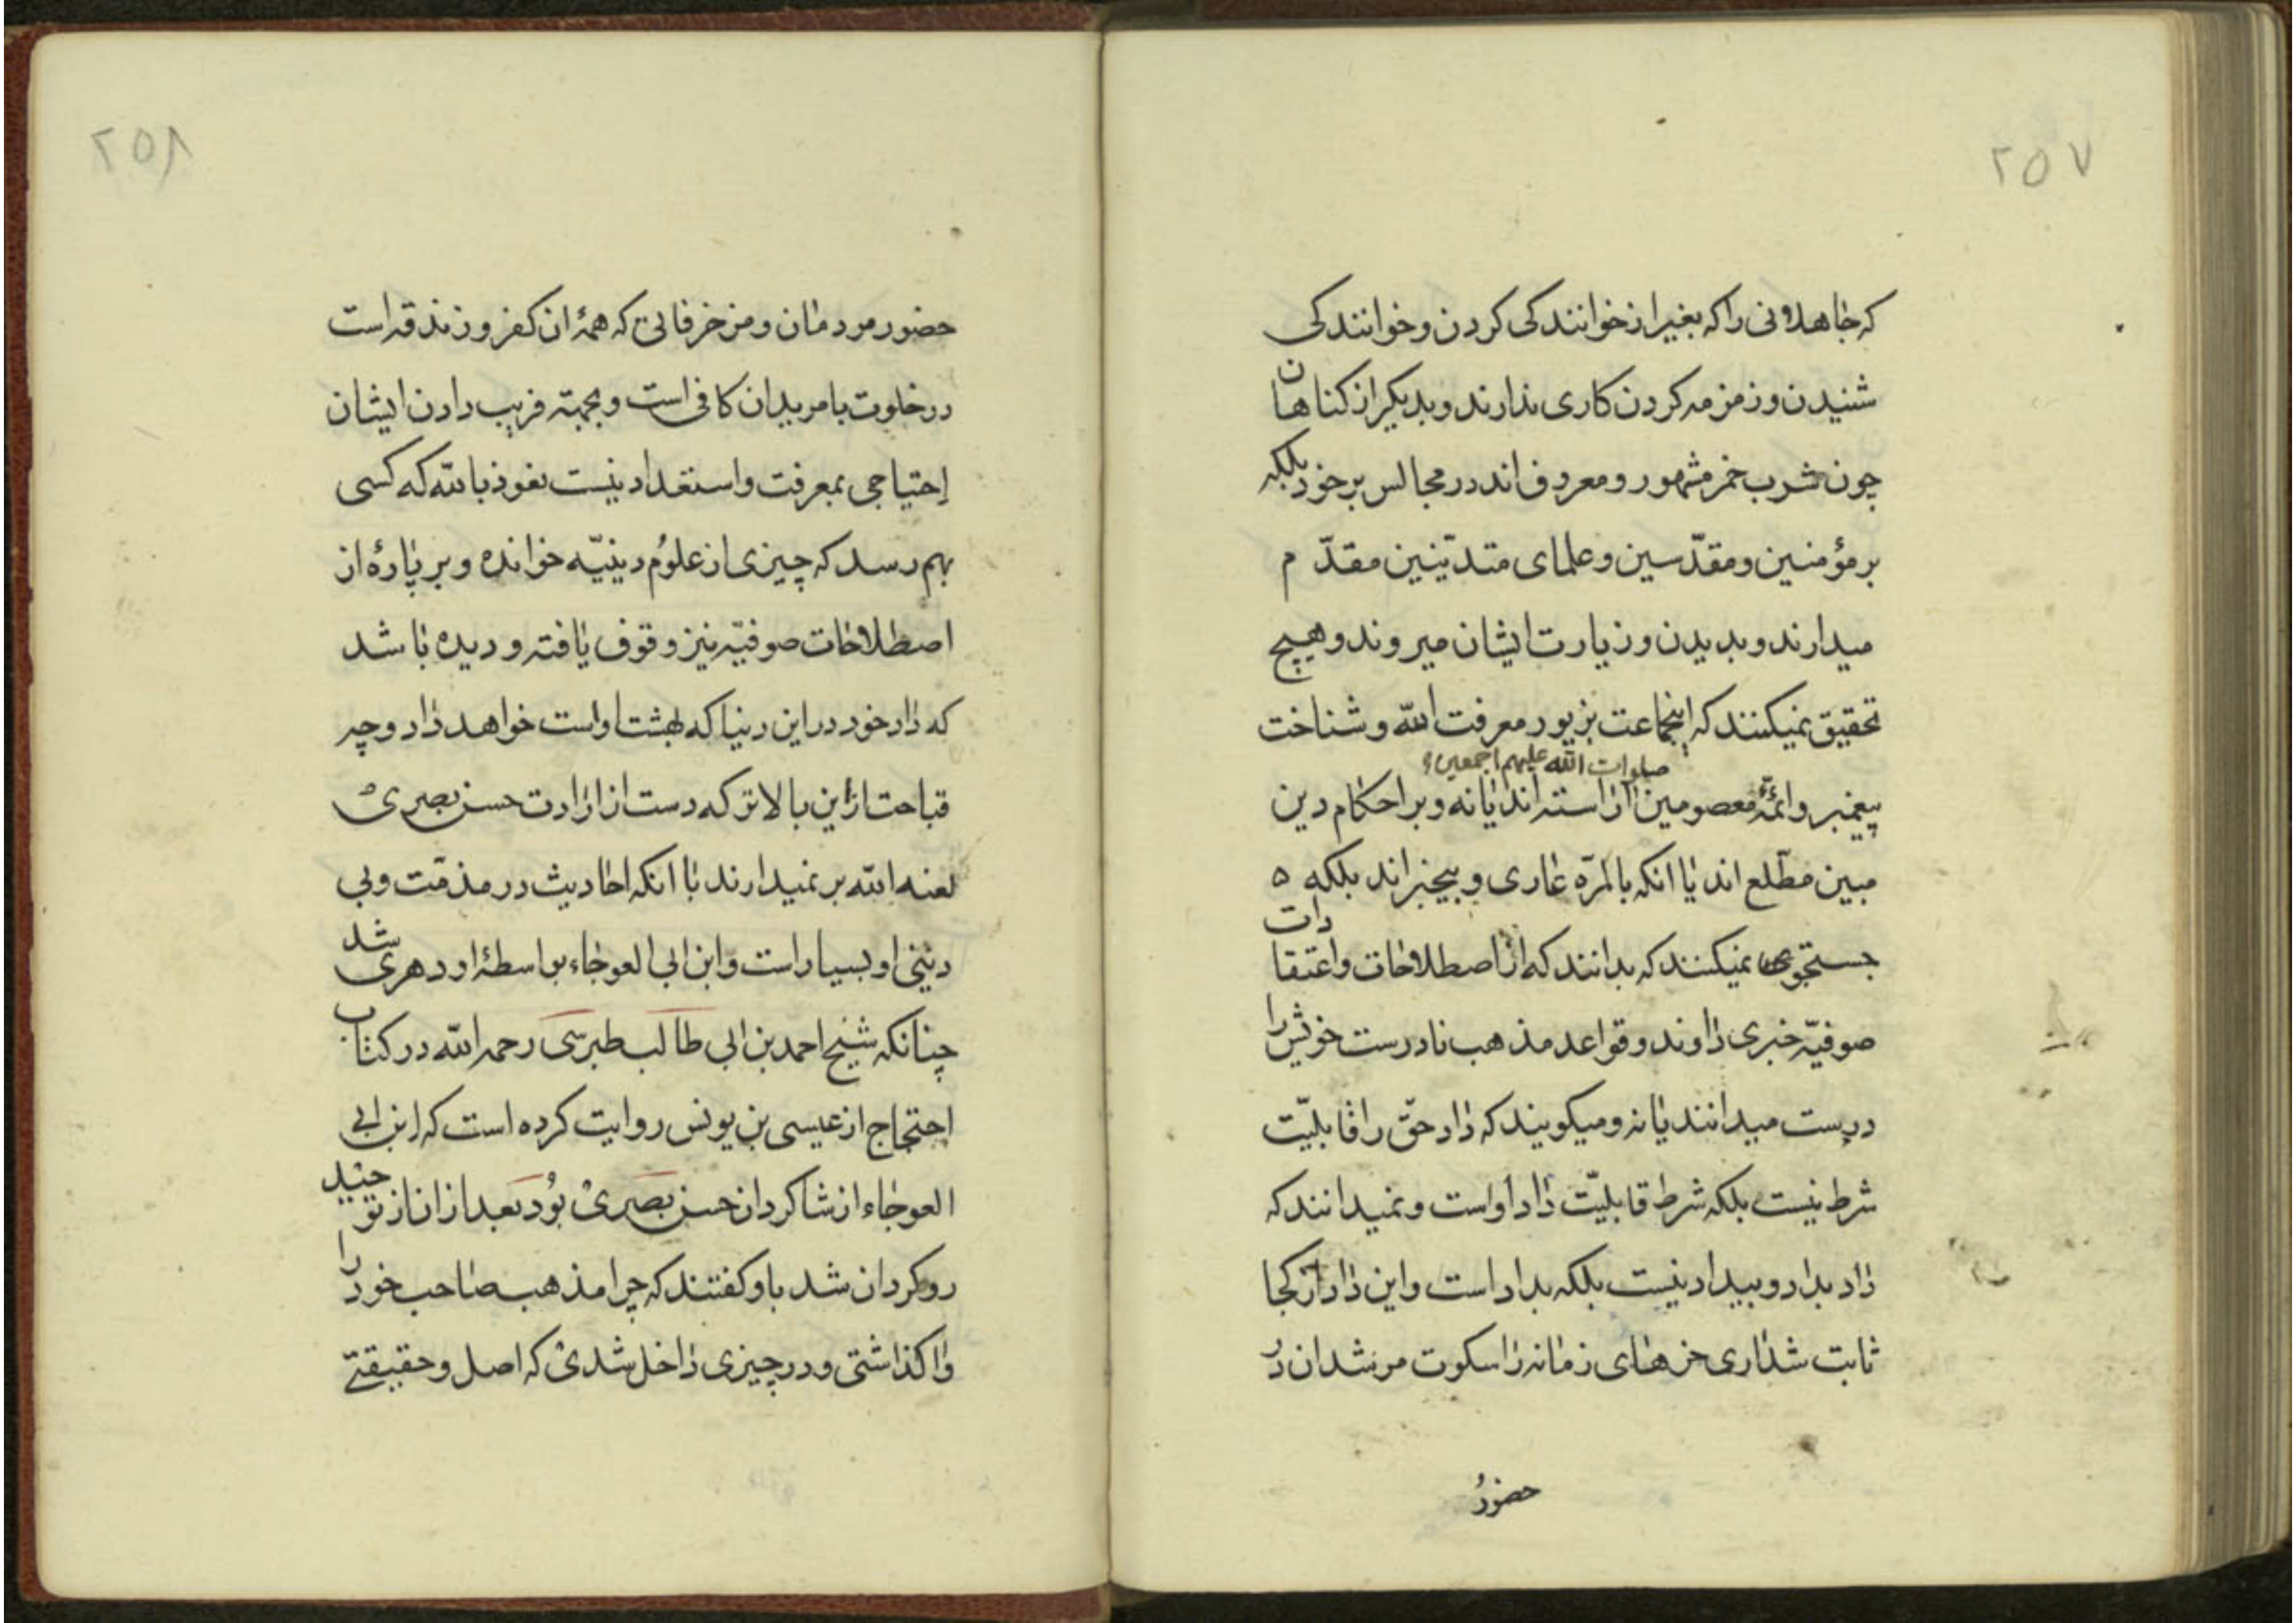 ۲۵۷
که جاهلانی را که بغیر از خوانندکی کردن و خوانندکی
شنیدن و زمزمه کردن کاری ندارند و بدیکر از کناهان
چون شرب خمر مشهور و معروف اند در مجالس بر خود بلکه
بر مؤمنین و مقدّسین و علمای متدیّنین مقدّم
میدارند و بدیدن و زیارت ایشان میروند و هیچ
تحقیق نمیکنند که اینجماعت بزیور معرفت الله و شناخت
صلوات الله علیهم اجمعین
پیغمبر و ائمّهٔ معصومین آراسته اند یا نه و بر احکام دین
مبین مطّلع اند یا انکه بالمرّه عاری و بیخبراند بلکه ه
جستجوی نمیکنند که بدانند که از اصطلاحات و اعتقادات
صوفیّه خبری دارند و قواعد مذهب نادرست خویش را
درست میدانند یا نه و میکویند که داد حقّ را قابلیّت
شرط نیست بلکه شرط قابلیّت داد اوست و نمیدانند که
داد بداد و بیداد نیست بلکه بداد است و این داد از کجا
ثابت شد اری خرهای زمانه را سکوت مرشدان در
حضور
۲۵۸
حضور مردمان و مزخرفاتی که همهٔ ان کفر و زندقه است
در خلوت با مریدان کافی است و بجهته فریب دادن ایشان
احتیاجی بمعرفت و استعداد نیست نعوذ بالله که کسی
بهم رسد که چیزی از علوم دینیّه خوانده و بر پارهٔ از
اصطلاحات صوفیّه نیز وقوف یافته و دیده باشد
که داد خود در این دنیا که بهشت اوست خواهد داد و چه
قباحت ازین بالاتر که دست از ارادت حسن بصری
لعنه الله بر نمیدارند با انکه احادیث در مذمّت و بی
دینی او بسیار است و ابن ابی العوجاء بواسطهٔ او دهری شد
چنانکه شیخ احمد بن ابی طالب طبرسی رحمه الله در کتاب
احتجاج از عیسی بن یونس روایت کرده است که ابن ابی
العوجاء از شاکردان حسن بصری بود بعد از ان از توحید
روکردان شد باو کفتند که چرا مذهب صاحب خود را
واکذاشتی و در چیزی داخل شدی که اصل و حقیقتی